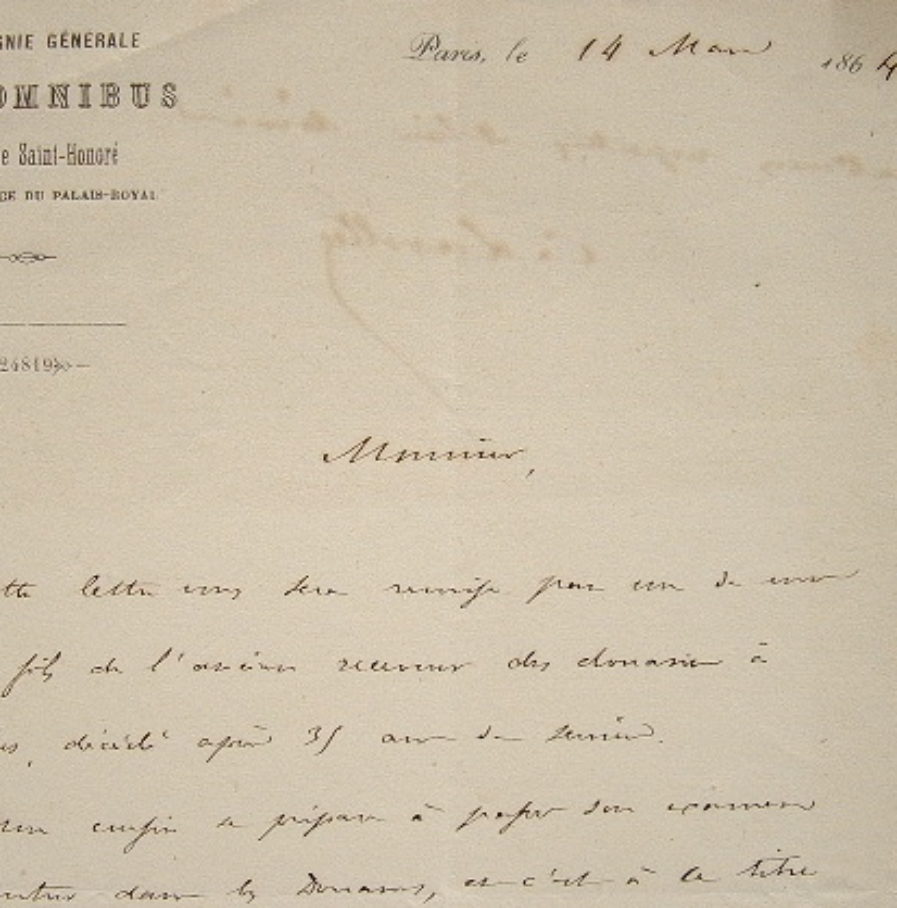 GNIE GÉNÉRALE
OMNIBUS
e Saint-Honoré
CE DU PALAIS-ROYAL
24819
Paris, le 14 Mars 1864
Monsieur,
tte lettre vous sera remise par un de mes
fils de l'ancien receveur des douanes à
décédé après 35 ans de service.
cousin se prépare à passer son examen
dans les Douanes, et c'est à ce titre